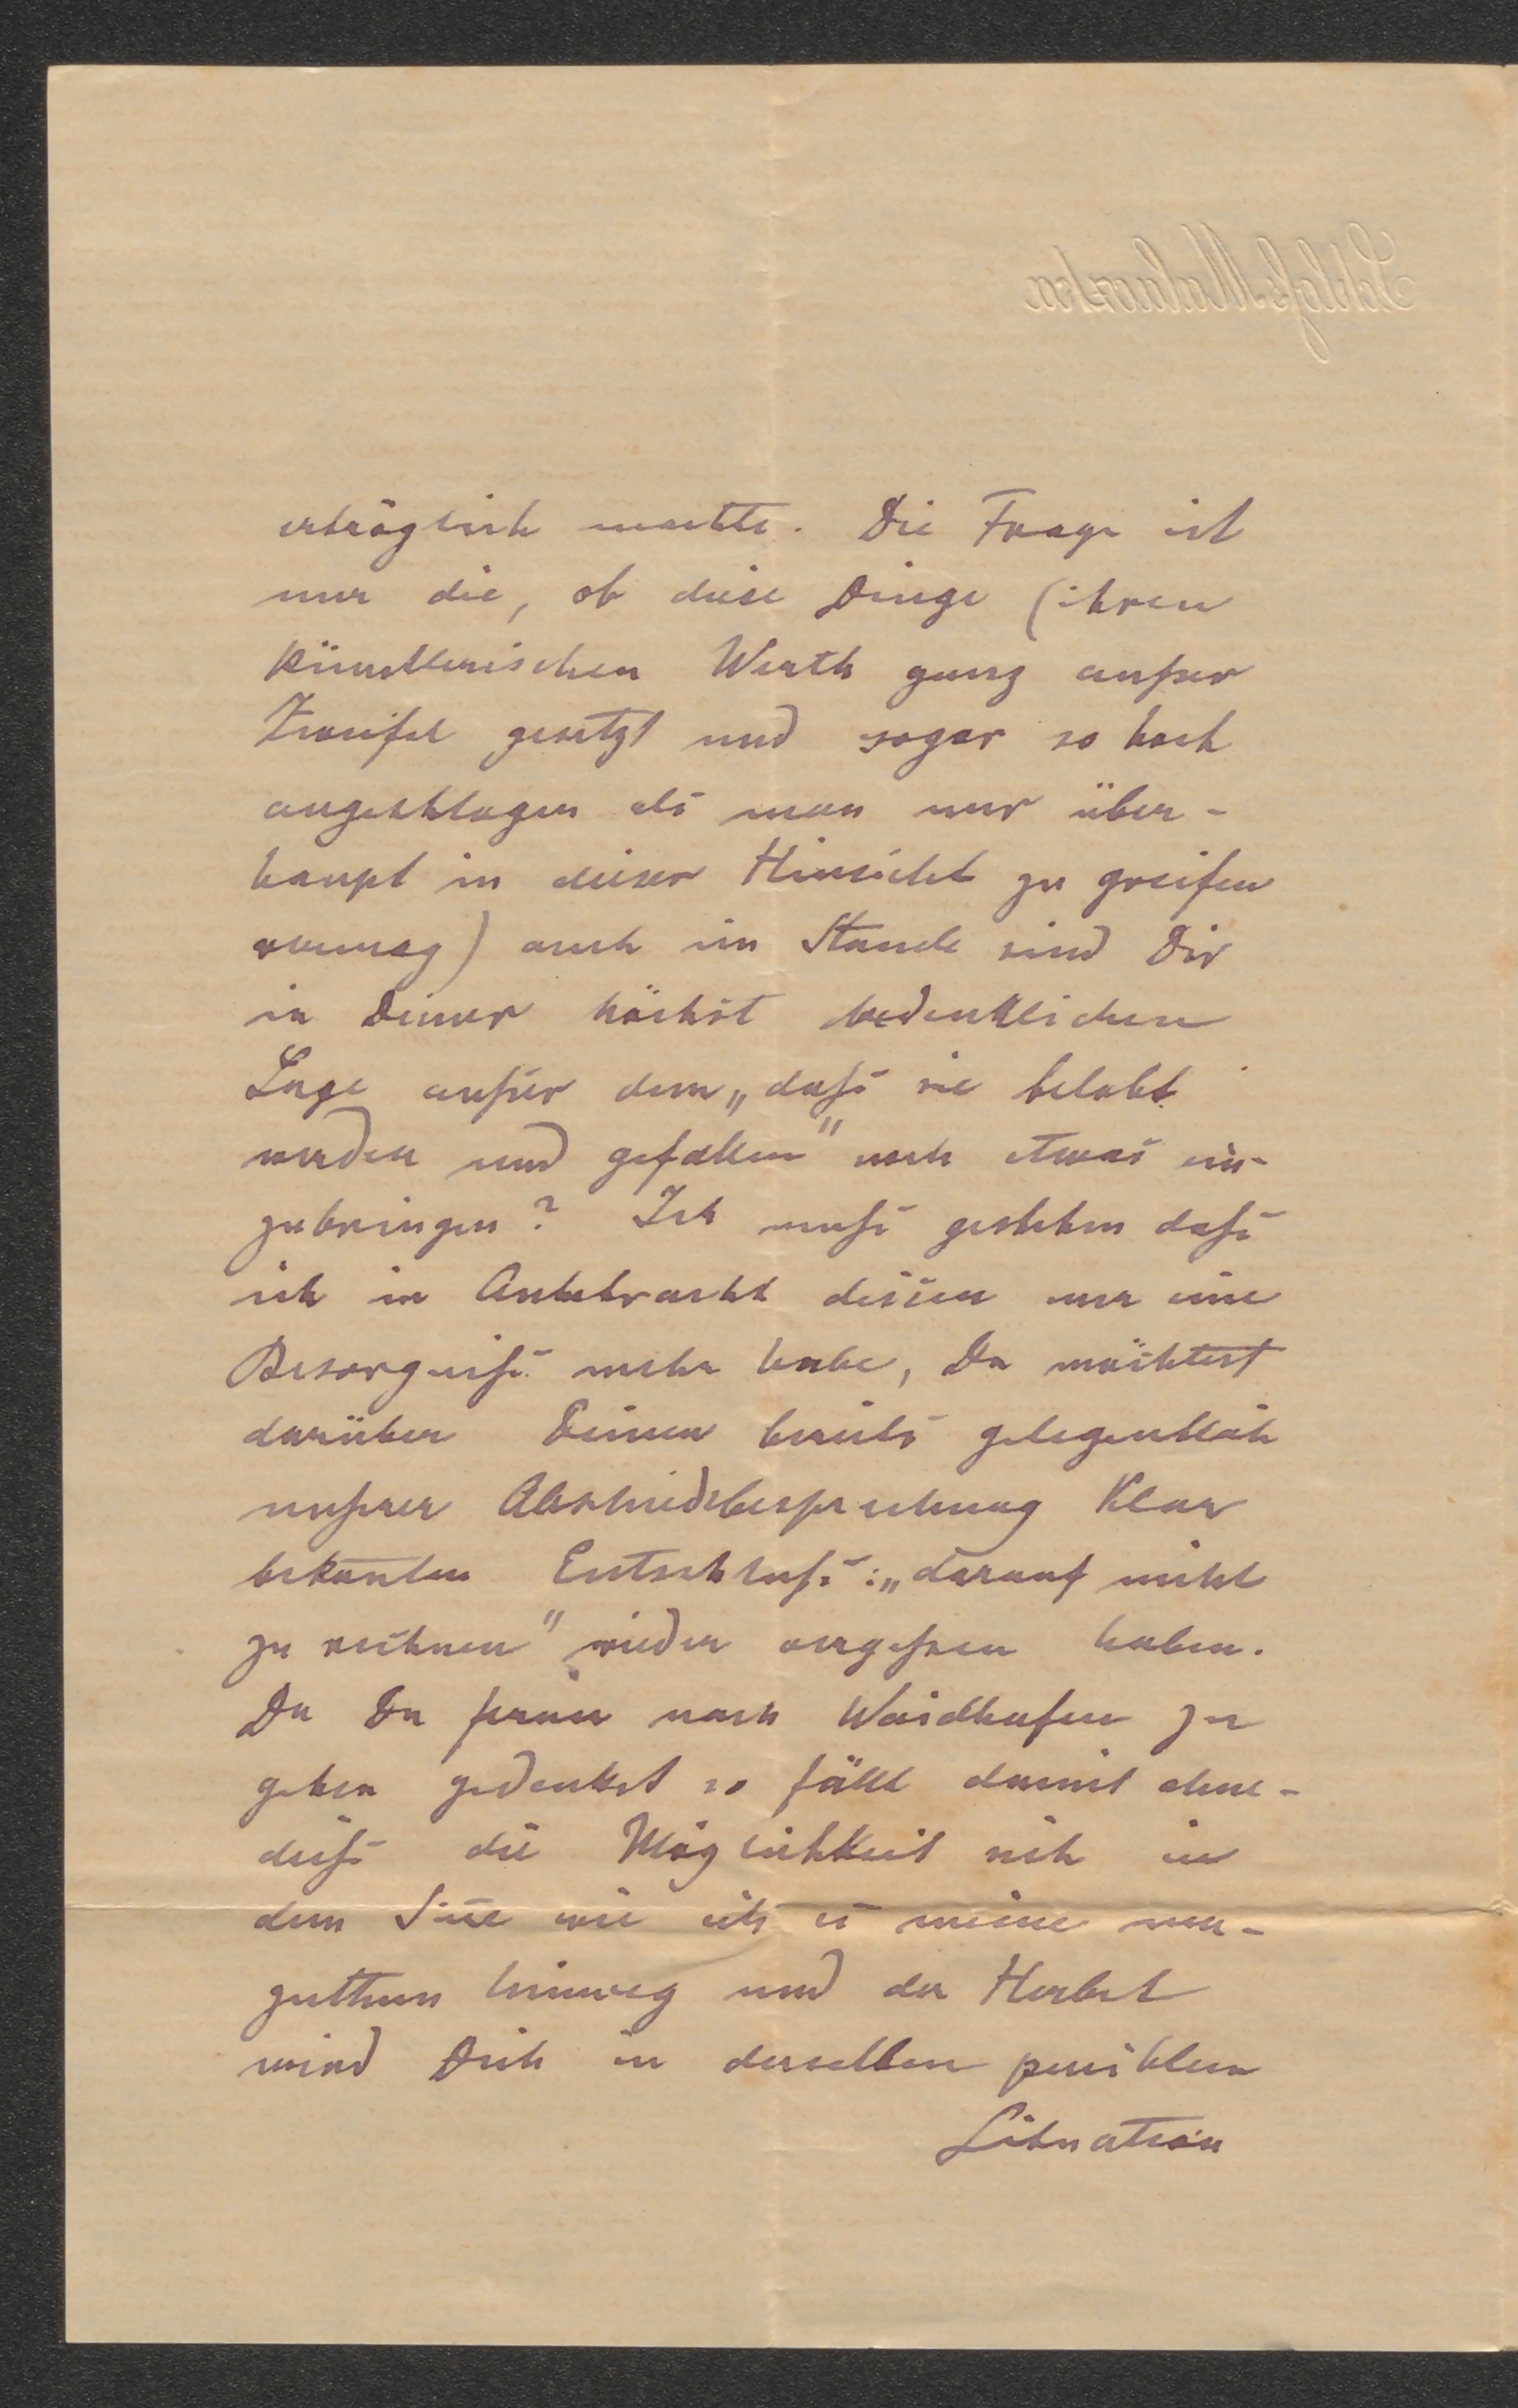 Schloß Mahrensdorf
erträglich machte. Die Frage ist
nur die, ob diese Dinge (ihren
künstlerischen Werth ganz außer
Zweifel gesetzt und sogar so hoch
angeschlagen als man nur über-
haupt in dieser Hinsicht zu greifen
vermag) auch im Stande sind Dir
in Deiner höchst bedenklichen
Lage außer dem „daß sie belobt
werden und gefallen" noch etwas ein-
zubringen? Ich muß gestehen daß
ich in Anbetracht dessen nur eine
Besorgniß mehr habe, Du möchtest
darüber Deinen bereits gelegentlich
unsrer Abschiedsbesprechung klar
bekanten Entschluß: „darauf nicht
zu rechnen" wieder vergessen haben.
Da Du ferner nach Waidhofen zu
gehen gedenkst so fällt damit ohne-
dieß die Möglichkeit sich in
dem Sine wie ich es meine
hinweg und der Herbst
wird Dich in derselben peniblen
Situation